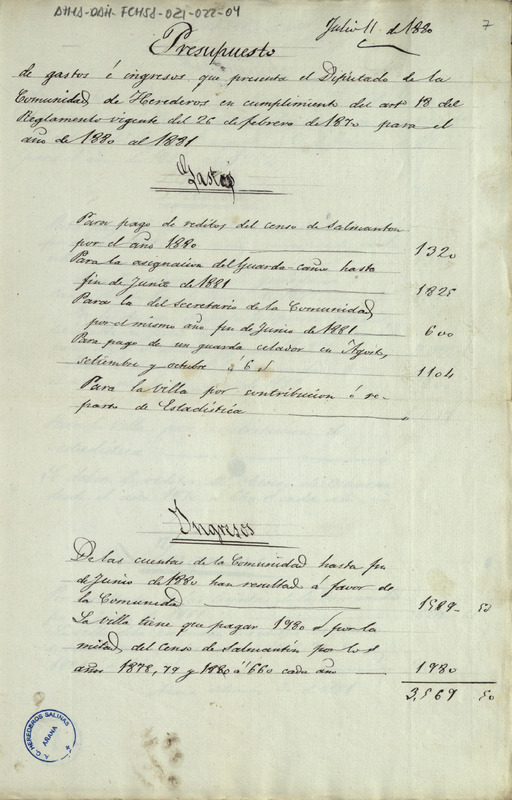 AHHA-OAH-FCHSA-021-022-04
Julio 11 de 1880
7
Presupuesto
de gastos é ingresos que presenta el Diputado de la
Comunidad de Herederos en cumplimiento del artº 18 del
Reglamento vigente del 26 de febrero de 1870 para el
año de 1880 al 1881
Gastos
Para pago de reditos del censo de Salmanton
por el año 1880 1320
Para la asignacion del Guarda-caño hasta
fin de Junio de 1881 1825
Para la del secretario de la Comunidad
por el mismo año fin de Junio de 1881 600
Para pago de un guarda celador en Agosto,
setiembre y octubre á 6 1104
Para la villa por contribucion ó re-
parto de Estadística "
Ingresos
De las cuentas de la Comunidad hasta fin
de Junio de 1880 han resultad á favor de
la Comunidad 1589- 50
La villa tiene que pagar 1980 por la
mitad del Censo de Salmantón por los
años 1878, 79 y 1880 á 660 cada año 1980
3,569 50
A. C. HEREDEROS SALINAS
ARANA